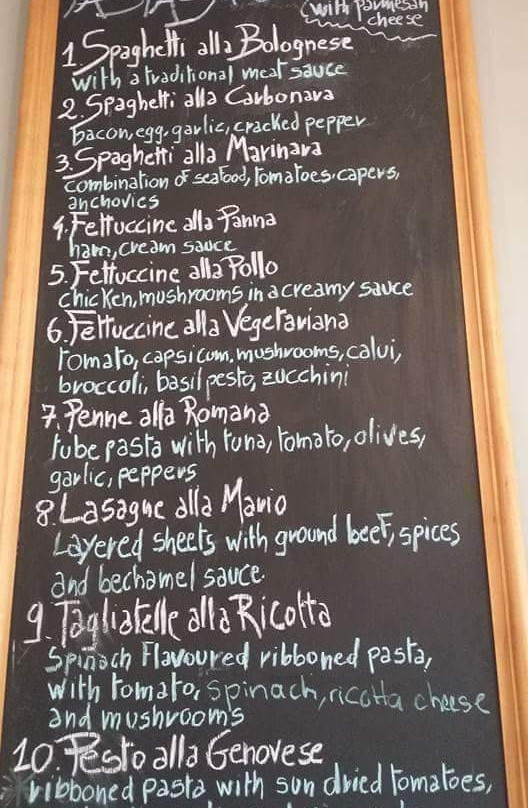 (with Parmesan
cheese
1. Spaghetti alla Bolognese
with a traditional meat sauce
2. Spaghetti alla Carbonara
bacon, egg, garlic, cracked pepper
3. Spaghetti alla Marinara
combination of seafood, tomatoes, capers,
anchovies
4. Fettuccine alla Panna
ham, cream sauce
5. Fettuccine alla Pollo
chicken, mushrooms in a creamy sauce
6. Fettuccine alla Vegetariana
tomato, capsicum, mushrooms, calui,
broccoli, basil pesto, zucchini
7. Penne alla Romana
tube pasta with tuna, tomato, olives,
garlic, peppers
8. Lasagne alla Mario
Layered sheets with ground beef, spices
and bechamel sauce.
9. Tagliatelle alla Ricotta
Spinach Flavoured ribboned pasta,
with tomato, spinach, ricotta cheese
and mushrooms
10. Pesto alla Genovese
ribboned pasta with sun dried tomatoes,